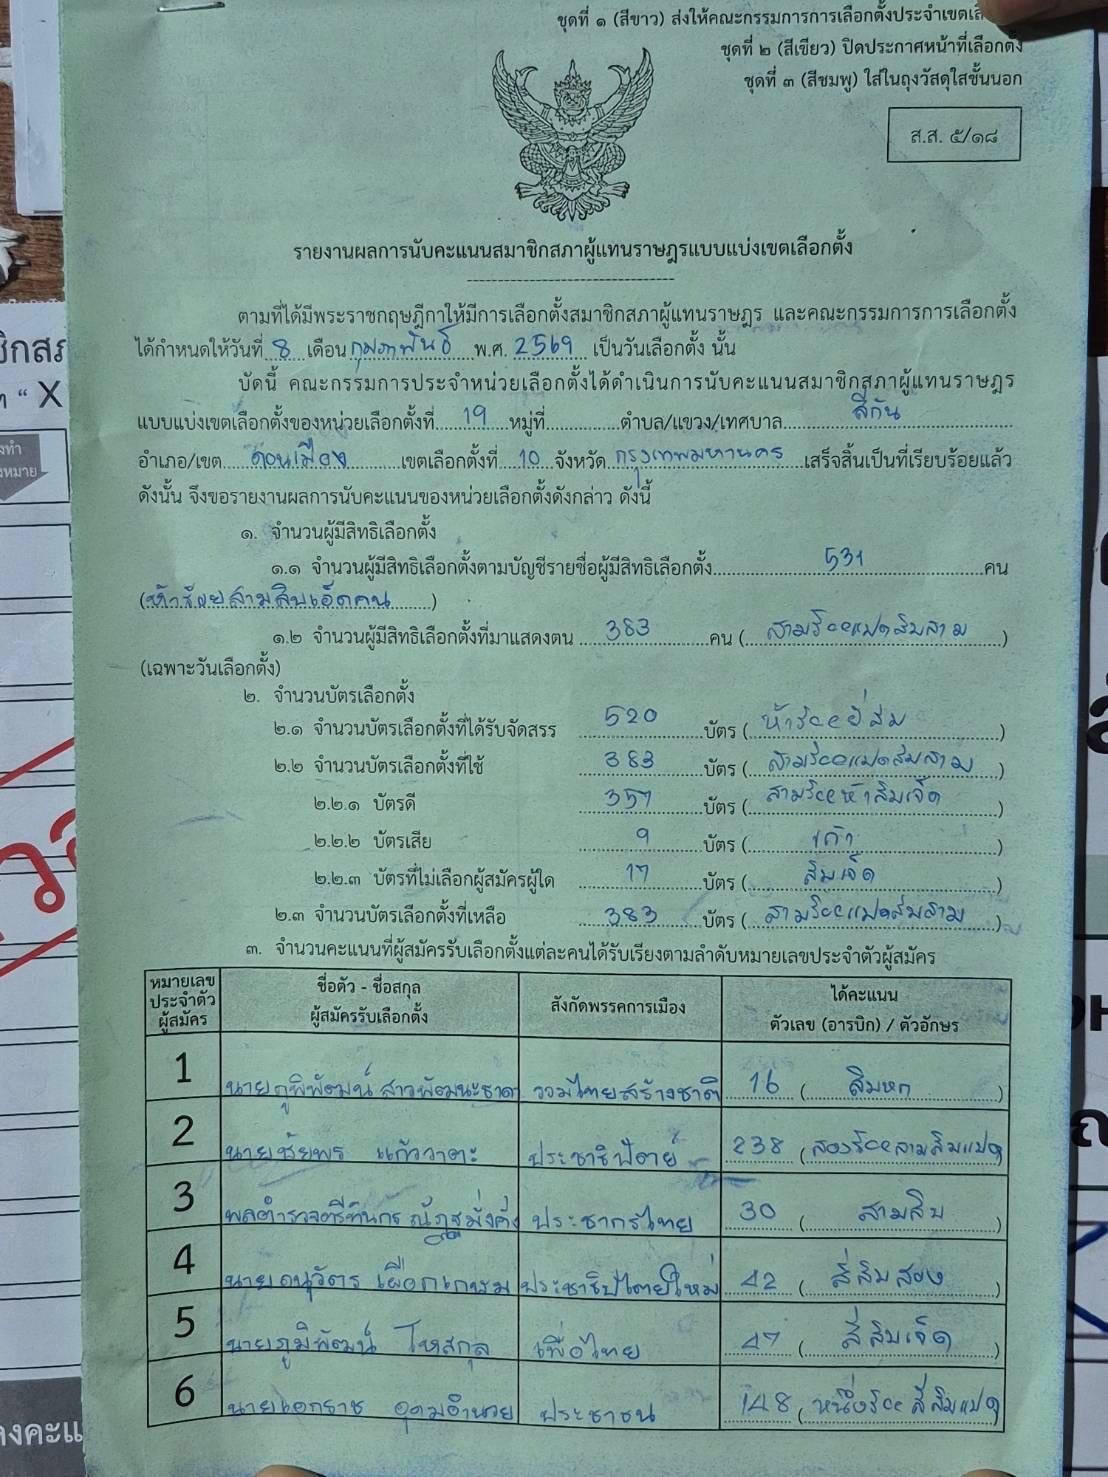 ชุดที่ ๑ (สีขาว) ส่งให้คณะกรรมการการเลือกตั้งประจำเขตเลื
ชุดที่ ๒ (สีเขียว) ปิดประกาศหน้าที่เลือกตั้ง
ชุดที่ ๓ (สีชมพู) ใส่ในถุงวัสดุใสชั้นนอก
ส.ส. ๕/๑๘
รายงานผลการนับคะแนนสมาชิกสภาผู้แทนราษฎรแบบแบ่งเขตเลือกตั้ง
ตามที่ได้มีพระราชกฤษฎีกาให้มีการเลือกตั้งสมาชิกสภาผู้แทนราษฎร และคณะกรรมการการเลือกตั้ง
ได้กำหนดให้วันที่ 8 เดือน กุมภาพันธ์ พ.ศ. 2569 เป็นวันเลือกตั้ง นั้น
บัดนี้ คณะกรรมการประจำหน่วยเลือกตั้งได้ดำเนินการนับคะแนนสมาชิกสภาผู้แทนราษฎร
แบบแบ่งเขตเลือกตั้งของหน่วยเลือกตั้งที่ 19 หมู่ที่ ตำบล/แขวง/เทศบาล สีกัน
อำเภอ/เขต ดอนเมือง เขตเลือกตั้งที่ 10 จังหวัด กรุงเทพมหานคร เสร็จสิ้นเป็นที่เรียบร้อยแล้ว
ดังนั้น จึงขอรายงานผลการนับคะแนนของหน่วยเลือกตั้งดังกล่าว ดังนี้
๑. จำนวนผู้มีสิทธิเลือกตั้ง
๑.๑ จำนวนผู้มีสิทธิเลือกตั้งตามบัญชีรายชื่อผู้มีสิทธิเลือกตั้ง 531 คน
(ห้าร้อยสามสิบเอ็ดคน)
๑.๒ จำนวนผู้มีสิทธิเลือกตั้งที่มาแสดงตน 383 คน (สามร้อยแปดสิบสาม)
(เฉพาะวันเลือกตั้ง)
๒. จำนวนบัตรเลือกตั้ง
๒.๑ จำนวนบัตรเลือกตั้งที่ได้รับจัดสรร 520 บัตร (ห้าร้อยยี่สิบ)
๒.๒ จำนวนบัตรเลือกตั้งที่ใช้ 383 บัตร (สามร้อยแปดสิบสาม)
๒.๒.๑ บัตรดี 357 บัตร (สามร้อยห้าสิบเจ็ด)
๒.๒.๒ บัตรเสีย 9 บัตร (เก้า)
๒.๒.๓ บัตรที่ไม่เลือกผู้สมัครผู้ใด 17 บัตร (สิบเจ็ด)
๒.๓ จำนวนบัตรเลือกตั้งที่เหลือ 383 บัตร (สามร้อยแปดสิบสาม)
๓. จำนวนคะแนนที่ผู้สมัครรับเลือกตั้งแต่ละคนได้รับเรียงตามลำดับหมายเลขประจำตัวผู้สมัคร
หมายเลขประจำตัวผู้สมัคร ชื่อตัว - ชื่อสกุล ผู้สมัครรับเลือกตั้ง สังกัดพรรคการเมือง ได้คะแนน ตัวเลข (อารบิก) / ตัวอักษร
1 นายภูพิพัฒน์ สาวพัฒนะธาดา รวมไทยสร้างชาติ 16 (สิบหก)
2 นายชัยพร แก้ววาตะ ประชาธิปัตย์ 238 (สองร้อยสามสิบแปด)
3 พลตำรวจตรีทินกร ณัฏฐมั่งคั่ง ประชากรไทย 30 (สามสิบ)
4 นายอนุวัตร เผือกเกษม ประชาธิปไตยใหม่ 42 (สี่สิบสอง)
5 นายภูมิพัฒน์ โหสกุล เพื่อไทย 47 (สี่สิบเจ็ด)
6 นายเอกราช อุดมอำนวย ประชาชน 148 (หนึ่งร้อยสี่สิบแปด)